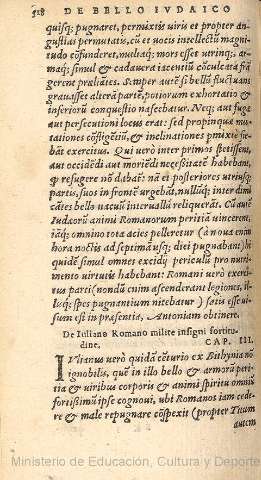 528 DE BELLO IVDAICO
quisq; pugnaret, permixtis uiris et propter an-
gustias permutatis, cũ et uocis intellectũ magni-
tudo cõfunderet, multaq; mors esset utrinq;, ar-
maq; simul & cadauera iacentiũ cõculcata frã
gerent præliātes. Semper autẽ si bello fluctuans
grauasset alterā parté, potiorum exhortatio &
inferiorũ conquestio nascebatur. Neq; aut fugæ
aut persecutioni locus erat: sed propinquæ mu-
tationes cõfligẽtiũ, & inclinationes pmixtæ fie-
bāt exercitus. Qui uerò inter primos stetissent,
aut occidẽdi aut moriẽdi necessitatẽ habebant,
q̃ refugere nõ dabat: nā et posteriores utriusq;
partis, suos in frontẽ urgebāt, nullūq; inter dimi
cātes bello uacuũ interuallũ reliquerāt. Cũ autẽ
Iudæorũ animi Romanorum peritiā uincerent,
iāq; omnino tota acies pelleretur (à nona enim
hora noctis ad septimā usq; diei pugnabant) hi
quidẽ simul omnes excidij periculũ pro muni-
mento uirtutis habebant: Romani uerò exerci-
tus parti (nondũ enim ascenderant legiones, il-
lisq; spes pugnantium nitebatur) satis esse ui-
sum est in præsentia, Antoniam obtinere.
De Iuliano Romano milite insigni fortitu-
dine. CAP. III.
IVlianus uerò quidā cẽturio ex Bithynia nõ
ignobilis, quẽ in illo bello & armorũ peri-
tia & uiribus corporis & animi spiritu omniũ
fortissimũ ipse cognoui, ubi Romanos iam cede-
re & male repugnare cõspexit (propter Titum
autem
Ministerio de Educación, Cultura y Deporte